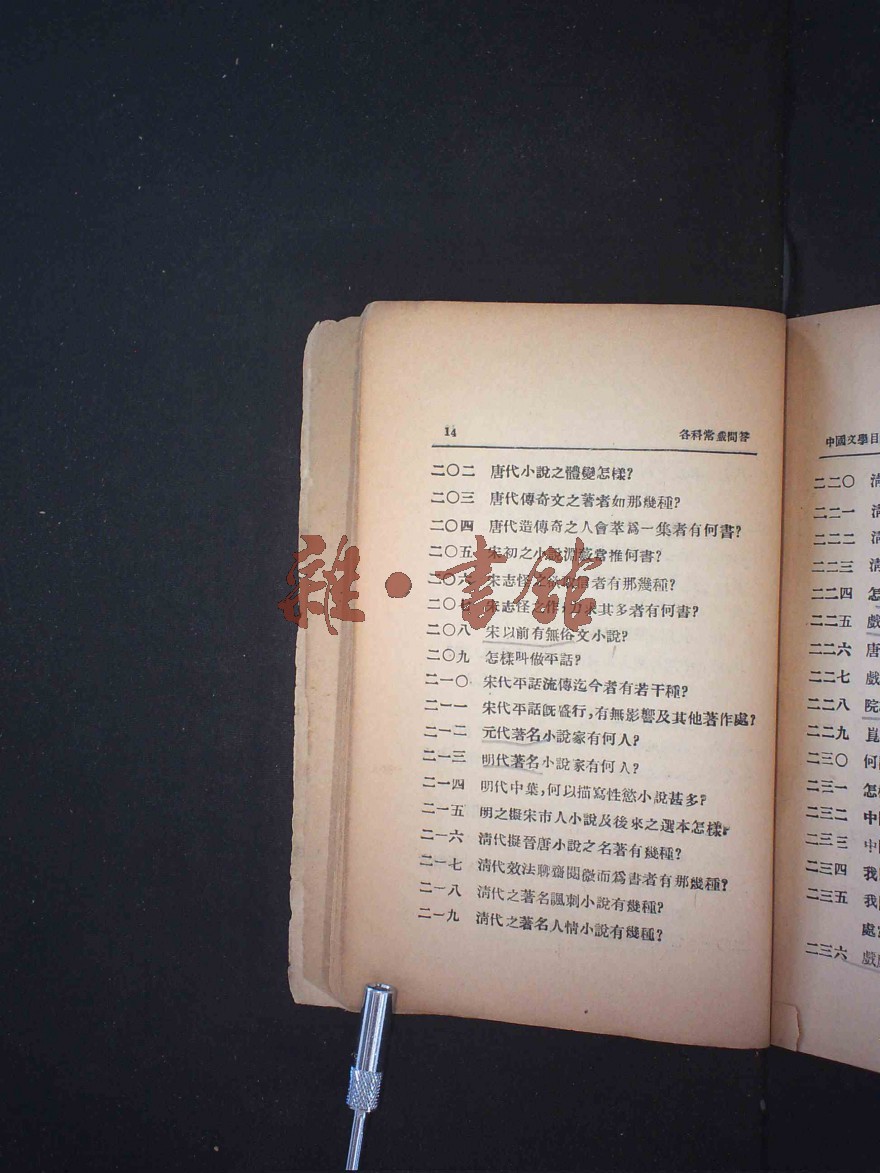 14 各科常識問答
二〇二 唐代小說之體變怎樣?
二〇三 唐代傳奇文之著者如那幾種?
二〇四 唐代造傳奇之人會萃爲一集者有何書?
二〇五 宋初之小說淵藪當推何書?
二〇六 宋志怪之欲取信者有那幾種?
二〇七 宋志怪之作 求其多者有何書?
二〇八 宋以前有無俗文小說?
二〇九 怎樣叫做平話?
二一〇 宋代平話流傳迄今者有若干種?
二一一 宋代平話旣盛行,有無影響及其他著作處?
二一二 元代著名小說家有何人?
二一三 明代著名小說家有何人?
二一四 明代中葉,何以描寫性慾小說甚多?
二一五 明之擬宋市人小說及後來之選本怎樣?
二一六 淸代擬晉唐小說之名著有幾種?
二一七 淸代效法聊齋閱微而爲書者有那幾種?
二一八 淸代之著名諷刺小說有幾種?
二一九 淸代之著名人情小說有幾種?
中國文學目
二二〇 淸
二二一 淸
二二二 淸
二二三 淸
二二四 怎
二二五 戲
二二六 唐
二二七 戲
二二八 院
二二九 崑
二三〇 何
二三一 怎
二三二 中
二三三 中
二三四 我
二三五 我
處
二三六 戲
雜·書館